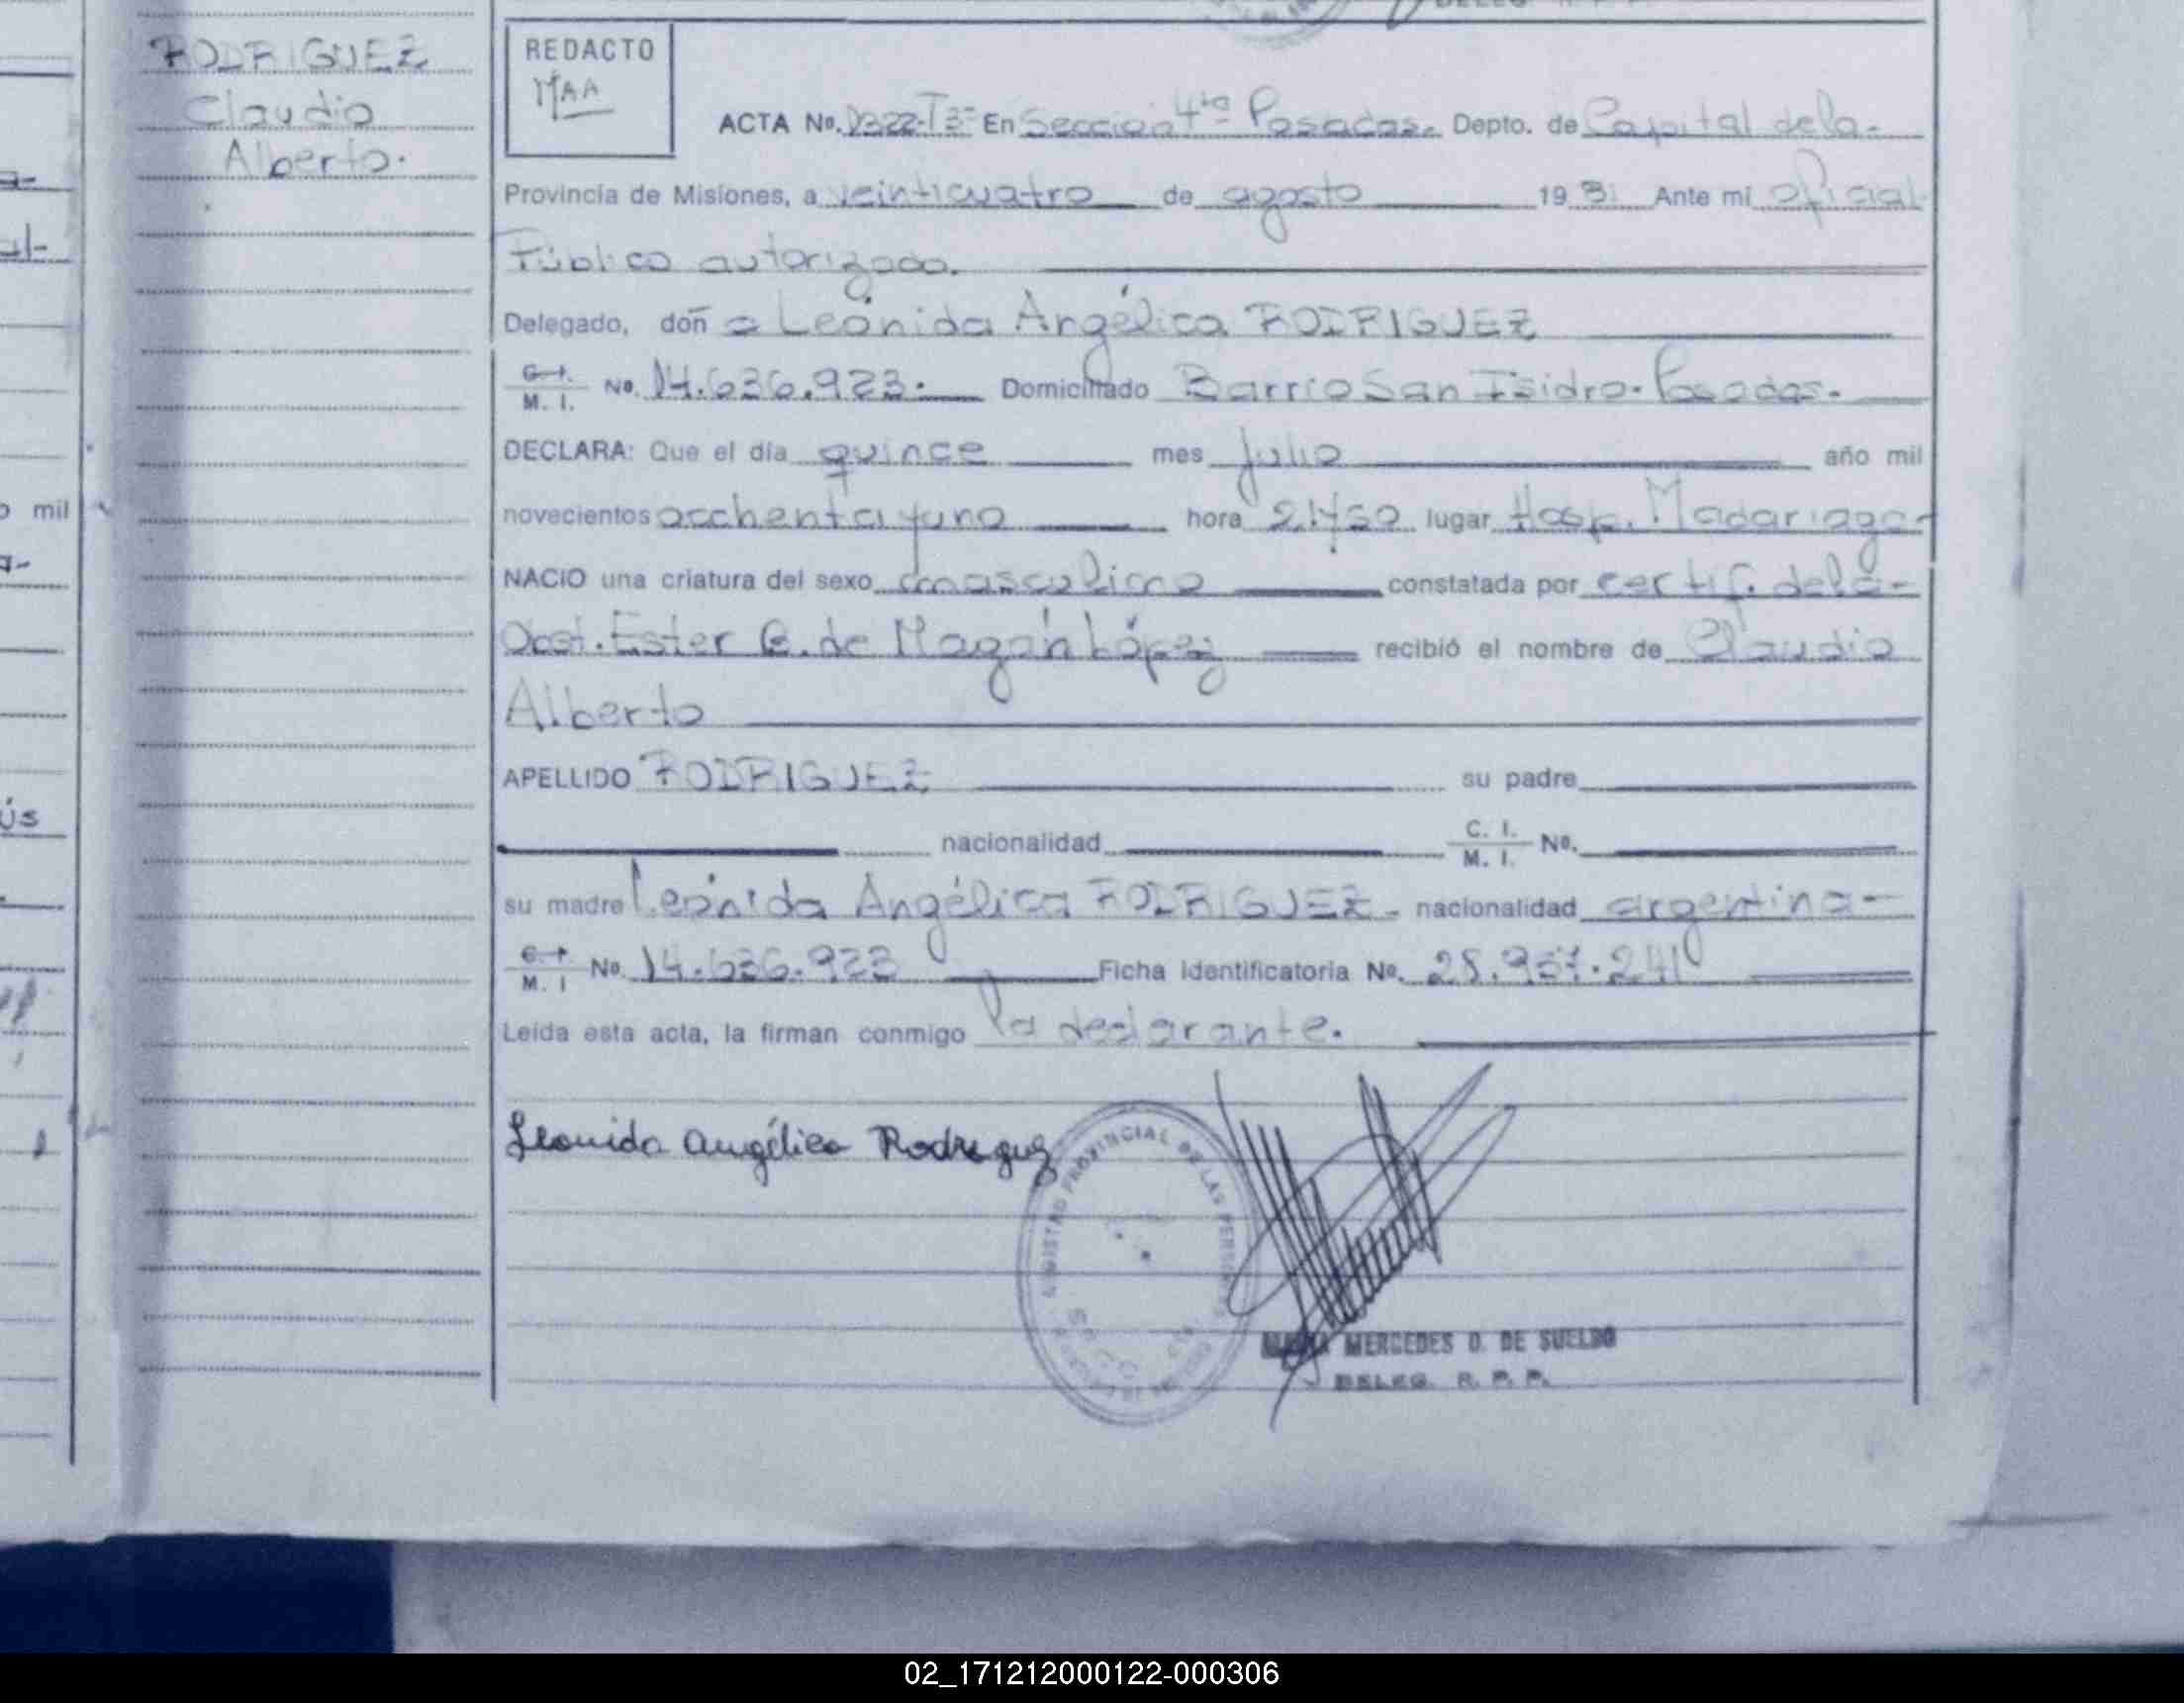 RODRIGUEZ
Claudio
Alberto.
REDACTO
MAA
ACTA No. 0322-T3- En Sección 4ta Posadas. Depto. de Capital de la-
Provincia de Misiones, a veinticuatro de agosto 1981 Ante mi oficial
Público autorizado.
Delegado, doña Leónida Angélica RODRIGUEZ
C. I. M. I. No. 14.636.923. Domiciliado Barrio San Isidro. Posadas.
DECLARA: Que el día quince mes Julio año mil
novecientos occhenta y uno hora 21,50 lugar Hosp. Madariaga-
NACIO una criatura del sexo masculino constatada por certif. de la-
Obst. Ester G. de Magán López recibió el nombre de Claudio
Alberto
APELLIDO RODRIGUEZ su padre
nacionalidad C. I. M. I. No.
su madre Leónida Angélica RODRIGUEZ- nacionalidad argentina-
C. I. M. I No. 14.636.923 Ficha Identificatoria No. 28.957.241
Leída esta acta, la firman conmigo la declarante.
Leonida Angélica Rodriguez
REGISTRO PROVINCIAL DE LAS PERSONAS
MERCEDES O. DE SUELDO
DELEG. R. P. P.
mil
ús
02_171212000122-000306